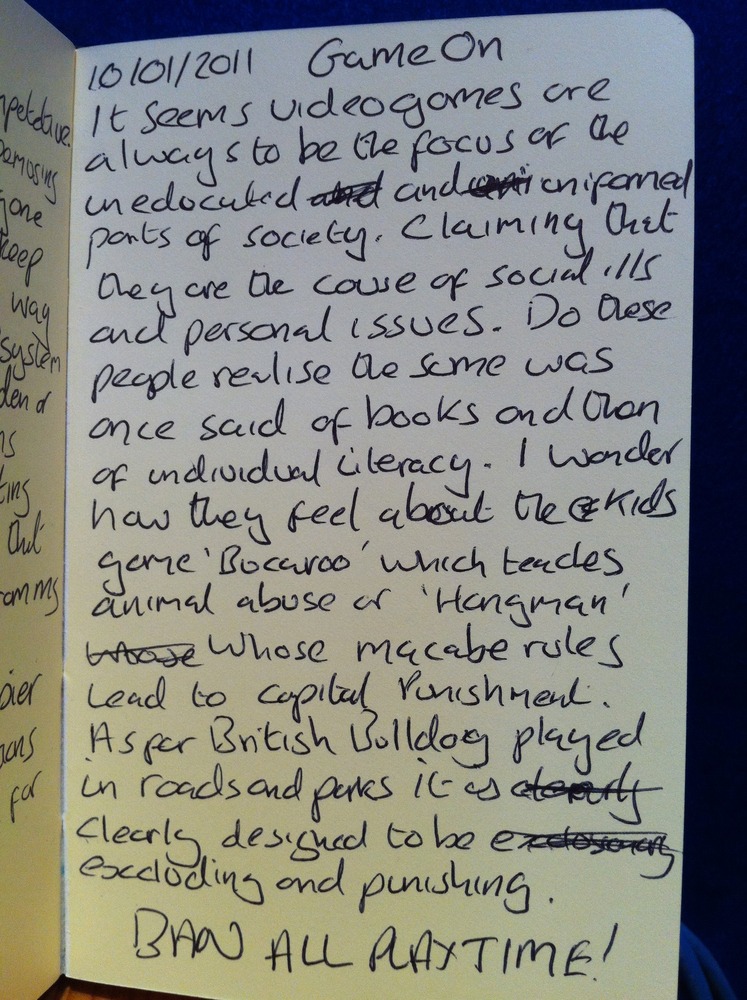 10/01/2011 Game On
It seems videogames are
always to be the focus of the
uneducated and uniformed
parts of society. Claiming that
they are the cause of social ills
and personal issues. Do these
people realise the same was
once said of books and than
of individual literacy. I wonder
how they feel about the Kids
game 'Bucaroo' which teaches
animal abuse or 'Hangman'
Whose macabe rules
Lead to capital Punishment.
As per British Bulldog played
in roads and parks it is
Clearly designed to be
excluding and punishing.
BAN ALL PLAYTIME!
way
system
ting
that
for